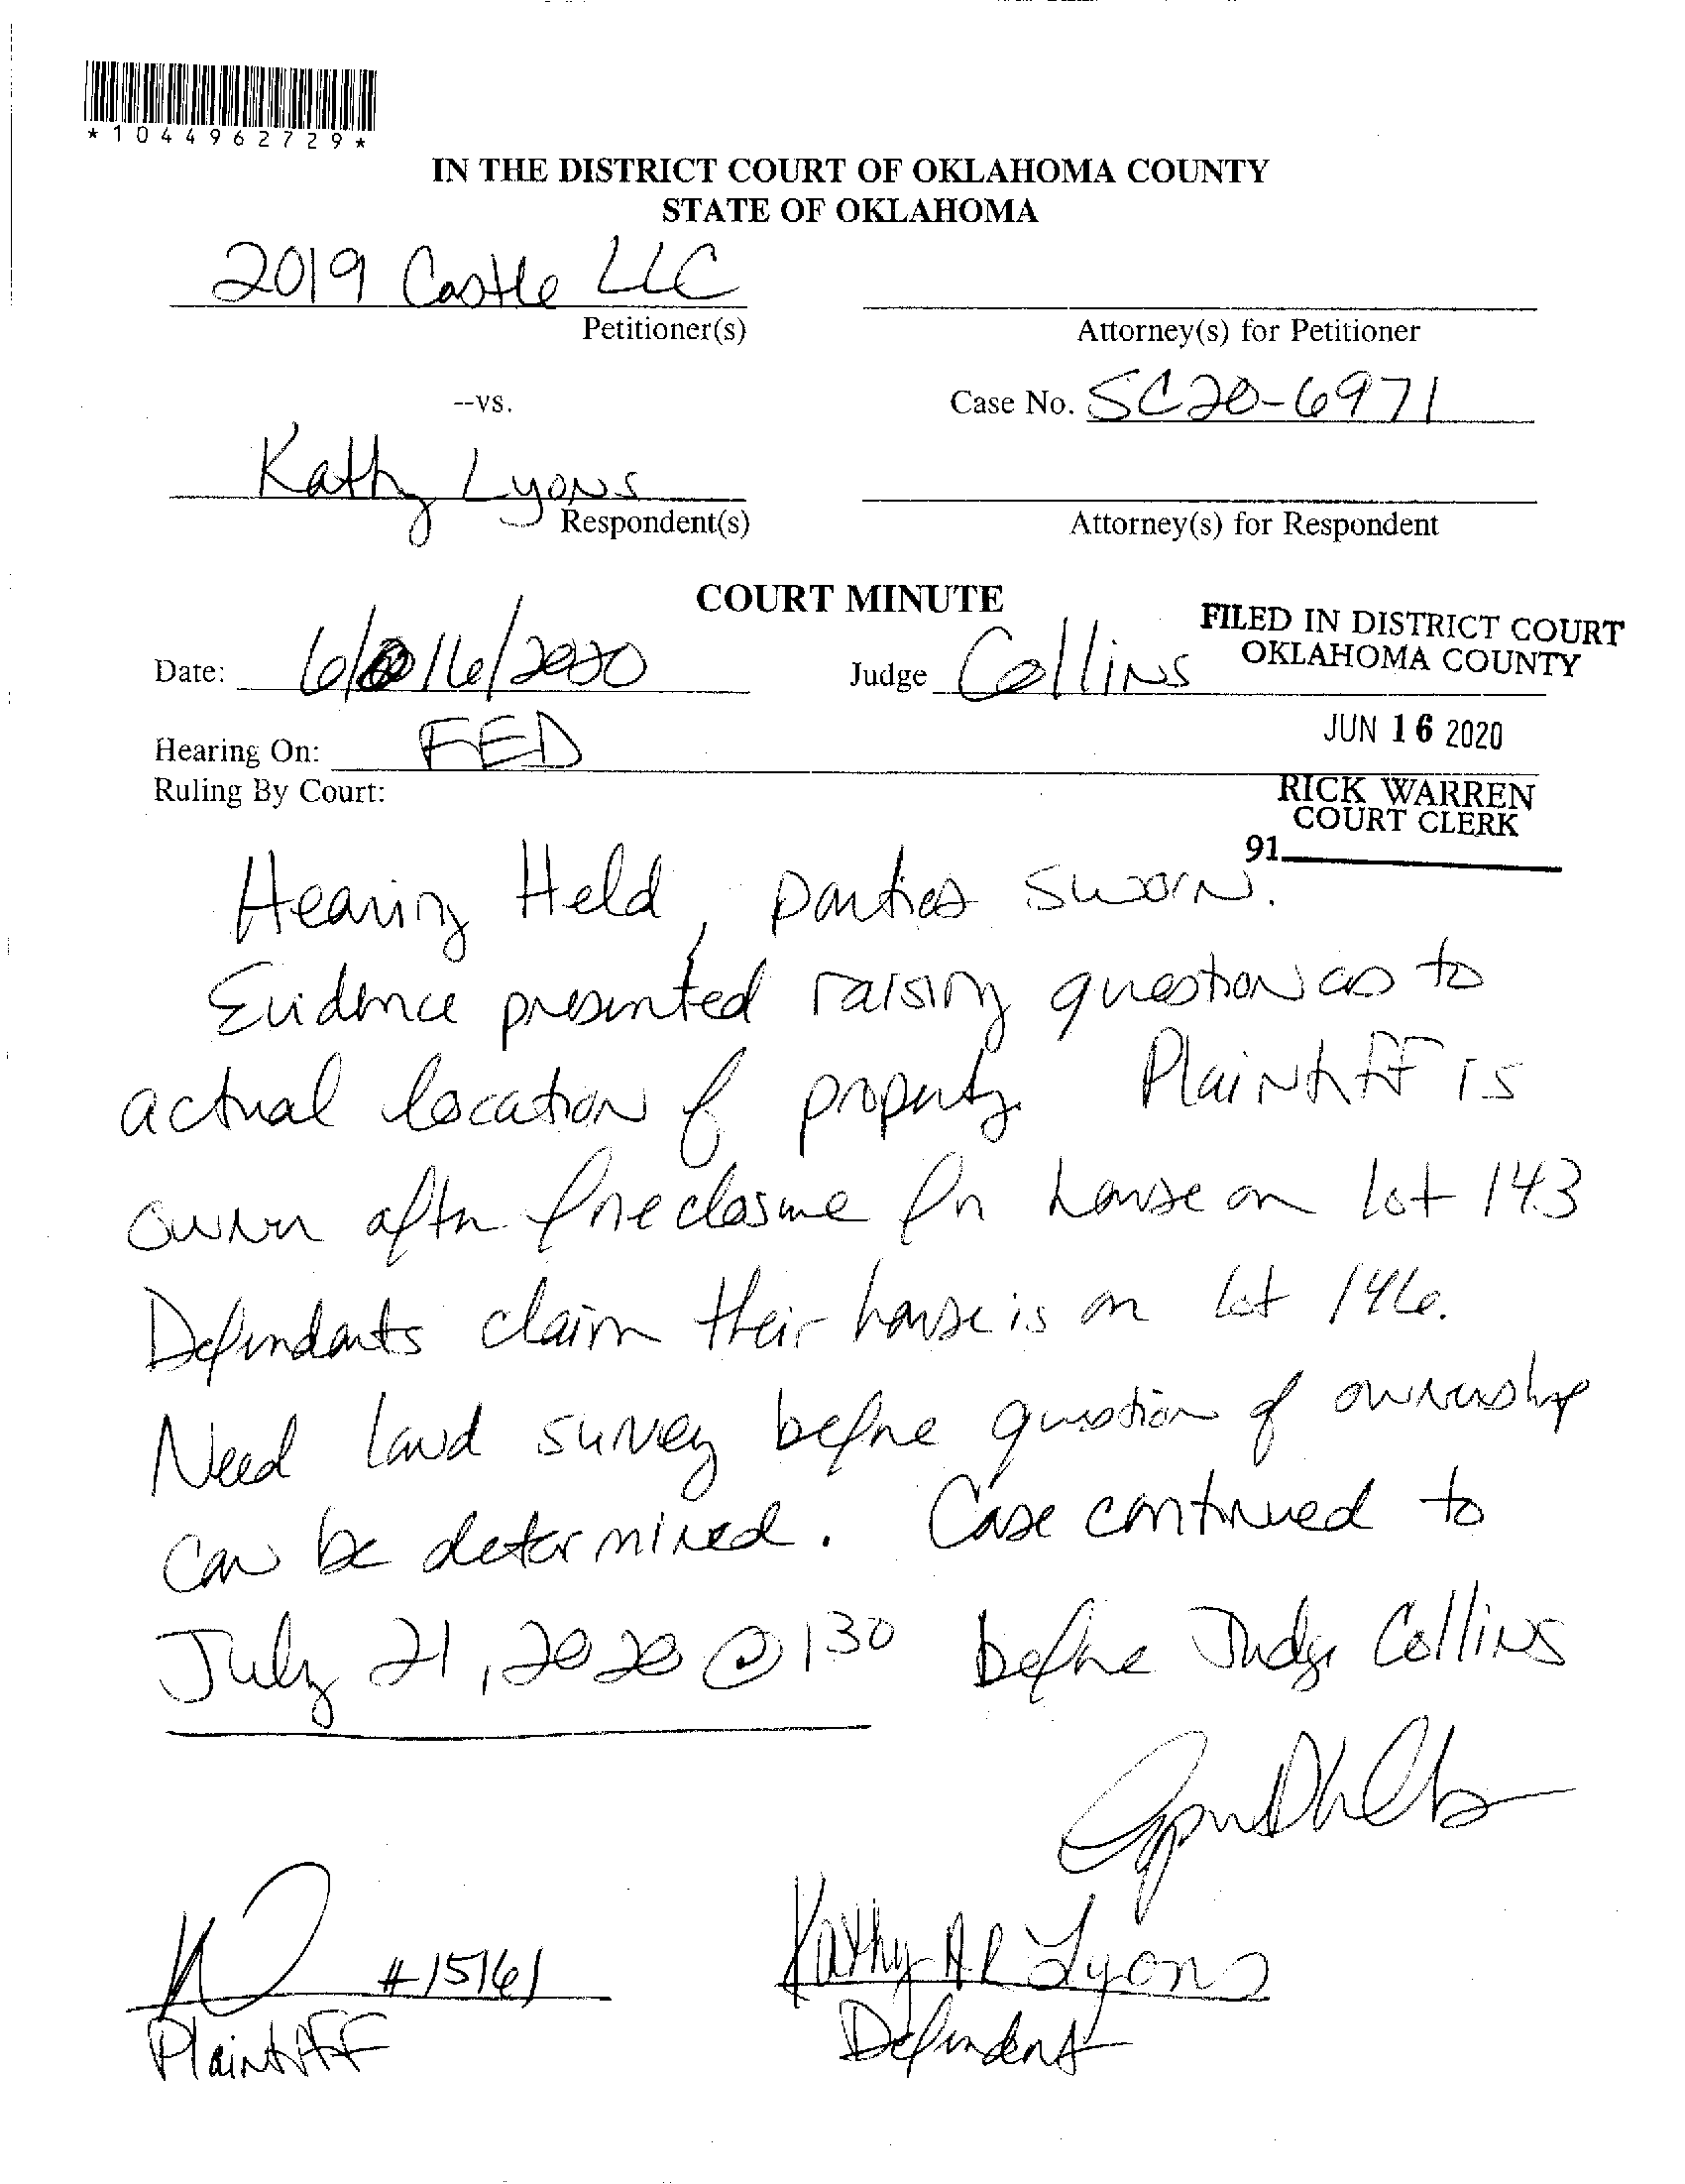 *1044962729*
IN THE DISTRICT COURT OF OKLAHOMA COUNTY
STATE OF OKLAHOMA
2019 Castle LLC
Petitioner(s)
Attorney(s) for Petitioner
--vs.
Case No. SC20-6971
Kathy Lyons
Respondent(s)
Attorney(s) for Respondent
COURT MINUTE
FILED IN DISTRICT COURT
OKLAHOMA COUNTY
Date: 6/16/2020
Judge Collins
JUN 16 2020
Hearing On: FED
Ruling By Court:
RICK WARREN
COURT CLERK
91
Hearing Held, parties sworn.
Evidence presented raising question as to
actual location of property. Plaintiff is
owner after foreclosure for house on lot 143
Defendants claim their house is on lot 146.
Need land survey before question of ownership
can be determined. Case continued to
July 21, 2020 @ 130 before Judge Collins
#15161
Plaintiff
Kathy AR Lyons
Defendant